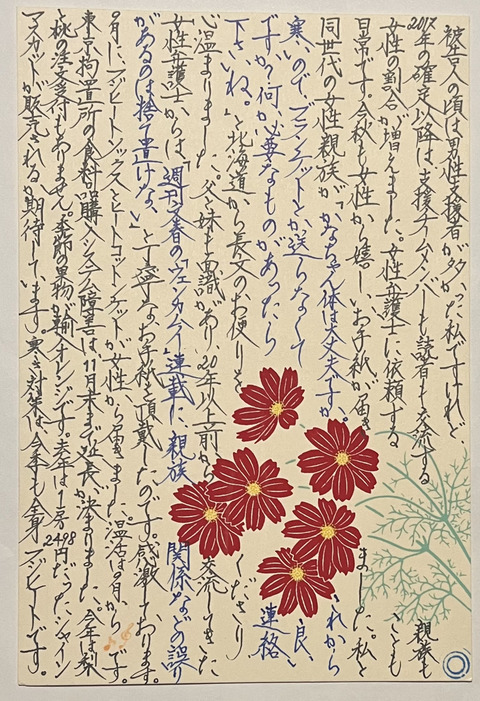 被告人の頃は男性支援者が多かった私ですけれど
2017年の確定以降は支援チームメンバーも読者も交流する親族も
女性の割合が増えました。女性弁護士に依頼することも
日常です。今秋も女性から嬉しいお手紙が届きました。私と
同世代の女性親族が「かなちゃん体は大丈夫ですか。これから
寒いので、ブランケットとか送らなくて良い
ですか?何か必要なものがあったら連絡
下さいね。」と北海道から長文のお便りをくださり
心温まりました。父と妹も面識があり、20年以上前から交流してきた
女性弁護士からは「週刊文春の『ウェカライ』連載に、親族関係などの誤り
があるのは捨て置けない」と丁寧なお手紙を頂戴したのです。感激しております。
9月に、ブヒートソックスとヒートコットンケットが女性から届きました。温活は9月からです。
東京拘置所の食料品購入システム障害は11月末まで延長が決まりました。今年は梨
と桃の注文受付もありません。季節の果物が輸入オレンジです。去年は1房2498円だったシャイン
マスカットが販売されるか期待しています。寒さ対策は今季も全身ブヒートです。